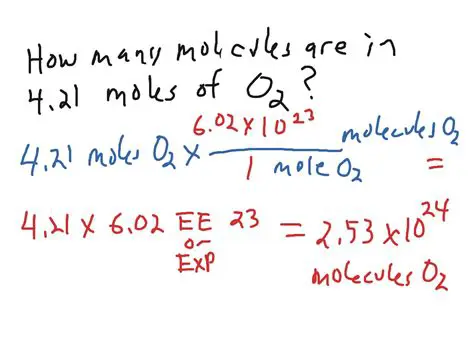 How many molecules are in
4.21 moles of O₂?
4.21 moles O₂ × 6.02×10²³ molecules O₂ / 1 mole O₂ =
4.21 × 6.02 EE 23 = 2.53 ×10²⁴
or
EXP
molecules O₂